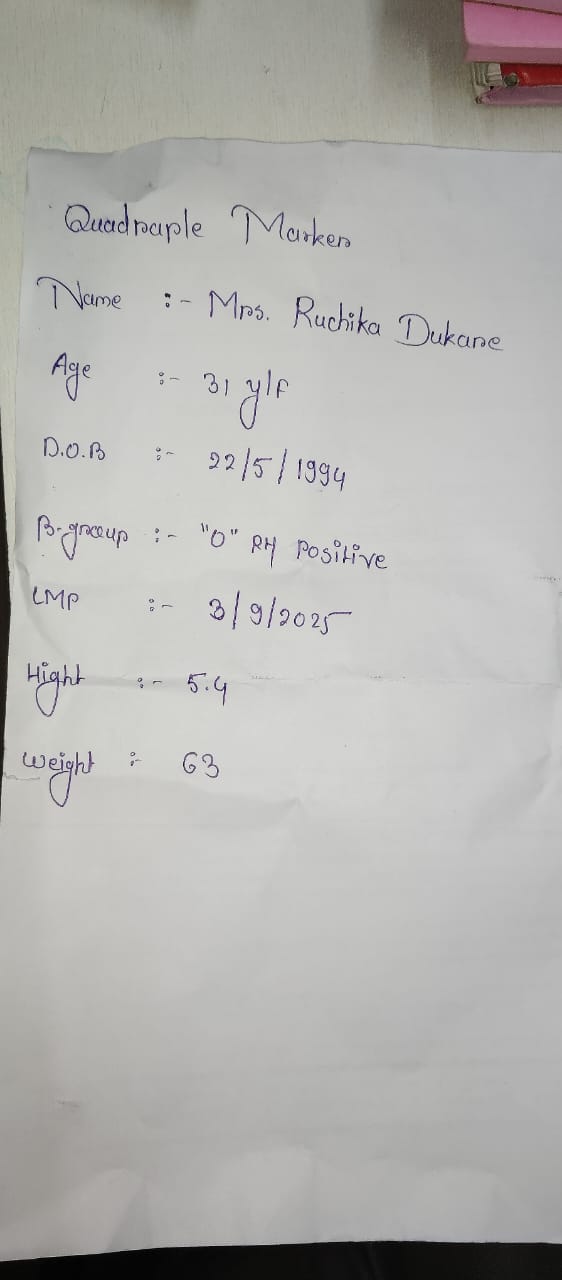 Quadraple Marker
Name :- Mrs. Ruchika Dukare
Age :- 31 y/F
D.O.B :- 22/5/1994
B-group :- "O" RH Positive
LMP :- 3/9/2025
Hight :- 5.4
Weight :- 63